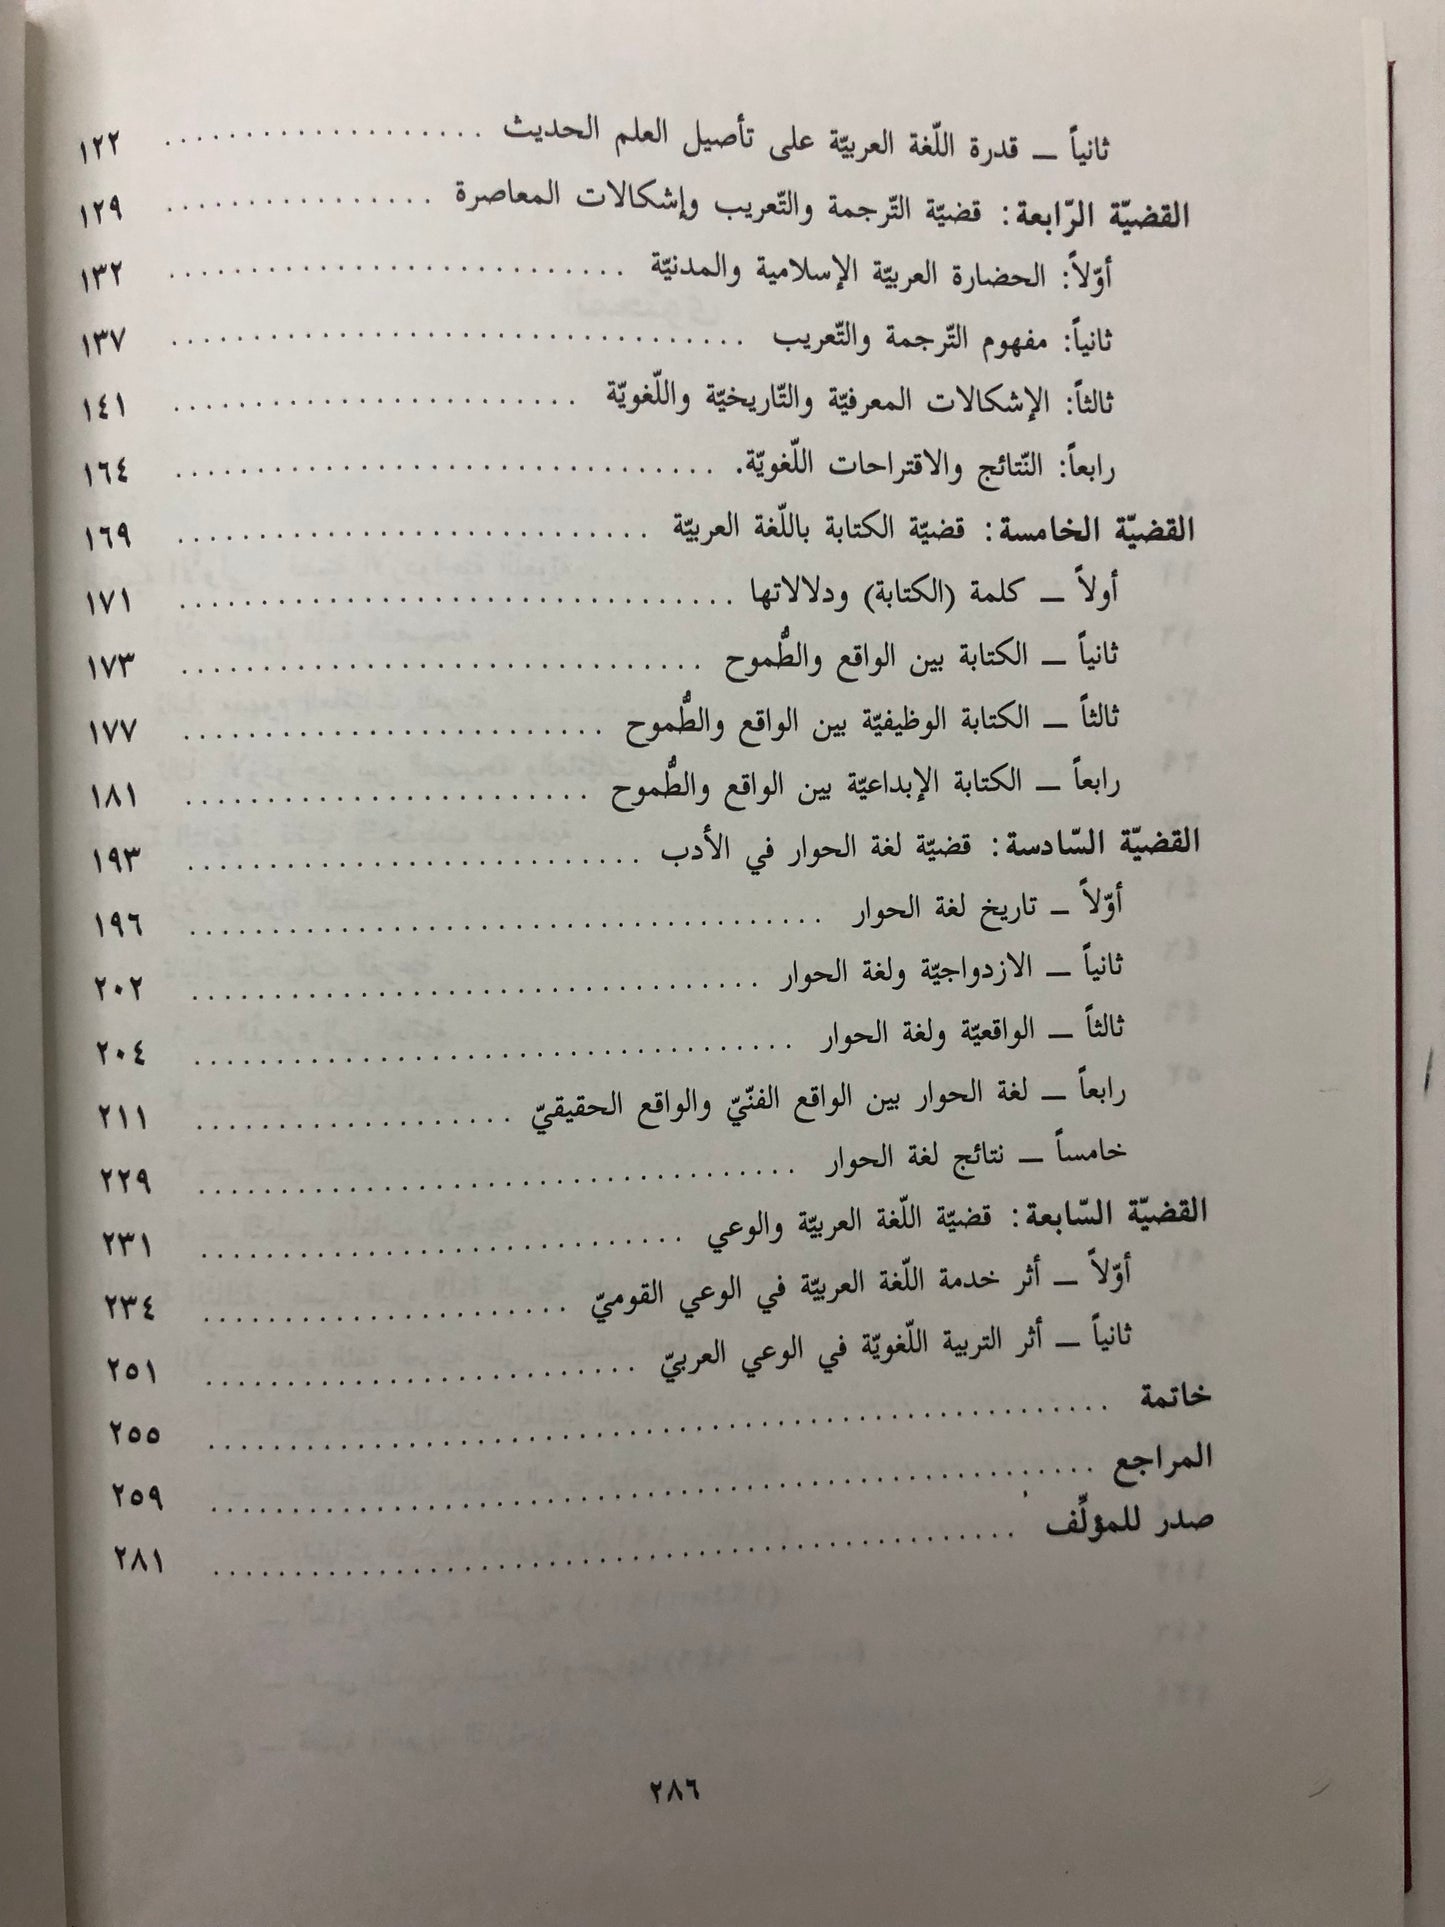 ثانياً ــ قدرة اللّغة العربيّة على تأصيل العلم الحديث ................... ١٢٢
القضيّة الرّابعة: قضيّة التّرجمة والتّعريب وإشكالات المعاصرة ................. ١٢٩
أوّلاً: الحضارة العربيّة الإسلامية والمدنيّة ............................ ١٣٢
ثانياً: مفهوم التّرجمة والتّعريب ................................... ١٣٧
ثالثاً: الإشكالات المعرفيّة والتّاريخيّة واللّغويّة ......................... ١٤١
رابعاً: النّتائج والاقتراحات اللّغويّة. ................................. ١٦٤
القضيّة الخامسة: قضيّة الكتابة باللّغة العربيّة ............................. ١٦٩
أولاً ــ كلمة (الكتابة) ودلالاتها .................................. ١٧١
ثانياً ــ الكتابة بين الواقع والطُّموح ................................ ١٧٣
ثالثاً ــ الكتابة الوظيفيّة بين الواقع والطُّموح .......................... ١٧٧
رابعاً ــ الكتابة الإبداعيّة بين الواقع والطُّموح ......................... ١٨١
القضيّة السّادسة: قضيّة لغة الحوار في الأدب ............................ ١٩٣
أوّلاً ــ تاريخ لغة الحوار ....................................... ١٩٦
ثانياً ــ الازدواجيّة ولغة الحوار ................................... ٢٠٢
ثالثاً ــ الواقعيّة ولغة الحوار ..................................... ٢٠٤
رابعاً ــ لغة الحوار بين الواقع الفنّيّ والواقع الحقيقيّ .................... ٢١١
خامساً ــ نتائج لغة الحوار ..................................... ٢٢٩
القضيّة السّابعة: قضيّة اللّغة العربيّة والوعي .............................. ٢٣١
أوّلاً ــ أثر خدمة اللّغة العربيّة في الوعي القوميّ ....................... ٢٣٤
ثانياً ــ أثر التربية اللّغويّة في الوعي العربيّ ........................... ٢٥١
خاتمة ....................................................... ٢٥٥
المراجع ...................................................... ٢٥٩
صدر للمؤلّف ................................................ ٢٨١
٢٨٦